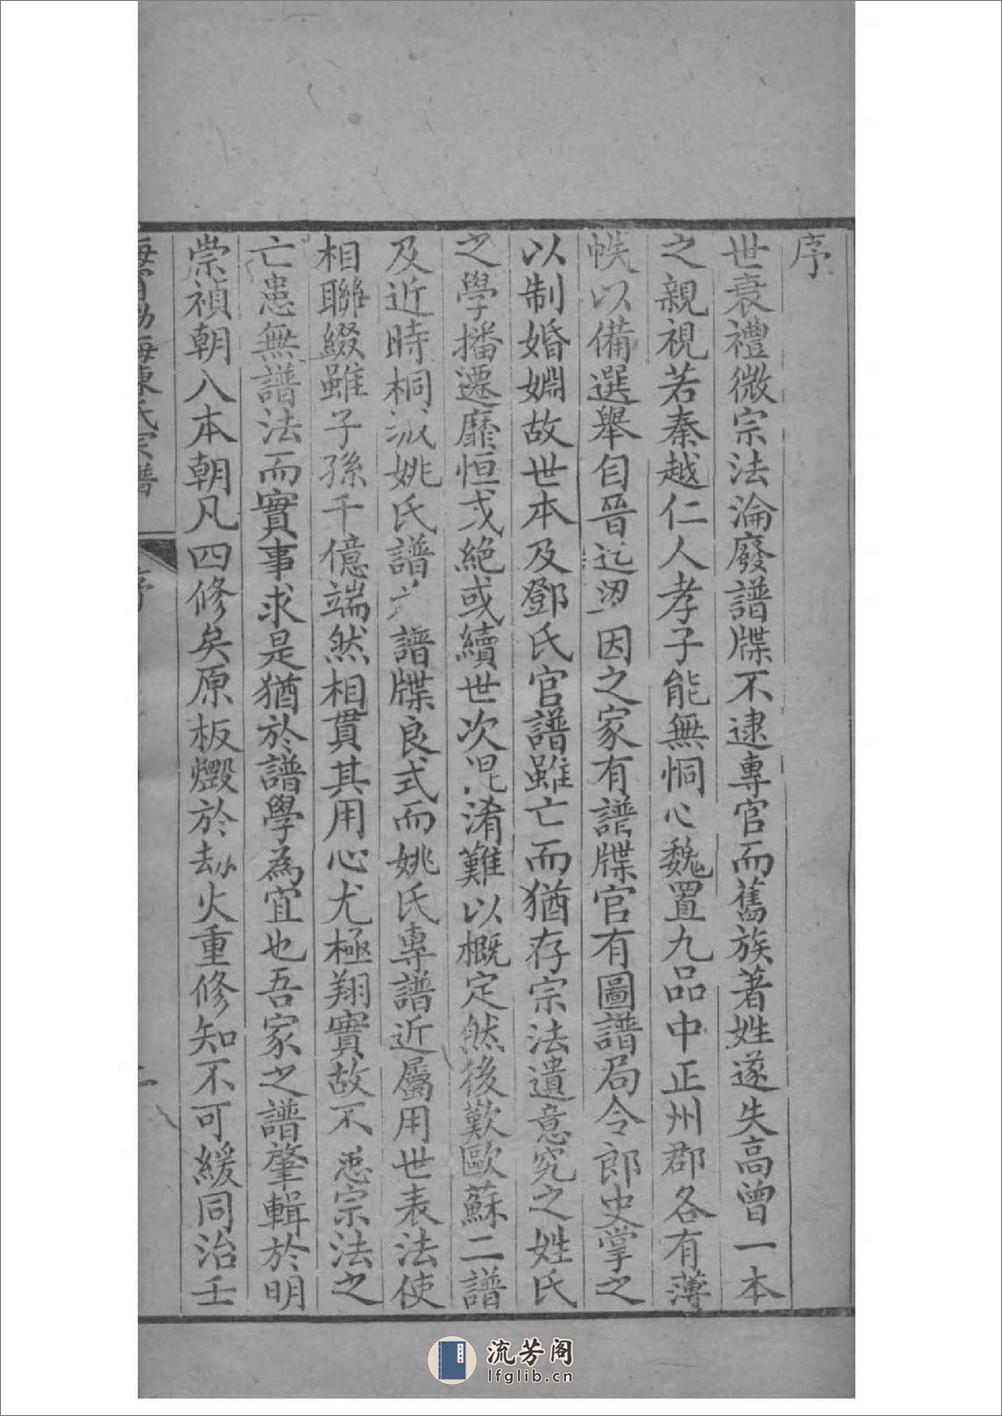 序
世衰禮微宗法淪廢譜牒不逮專官而舊族著姓遂失高曾一本
之親視若秦越仁人孝子能無恫心魏置九品中正州郡各有薄
帙以備選舉自晉迄因之家有譜牒官有圖譜局令郎史掌之
以制婚姻故世本及鄧氏官譜雖亡而猶存宗法遺意究之姓氏
之學播遷靡恒或絕或續世次混淆難以概定然後歎歐蘇二譜
及近時桐城姚氏譜譜牒良式而姚氏專譜近屬用世表法使
相聯綴雖子孫千億端然相貫其用心尤極翔實故不患宗法之
亡患無譜法而實事求是猶於譜學為宜也吾家之譜肇輯於明
崇禎朝入本朝凡四修矣原板燬於劫火重修知不可緩同治壬
海寧渤海陳氏宗譜 序 一
流芳阁
lfglib.cn